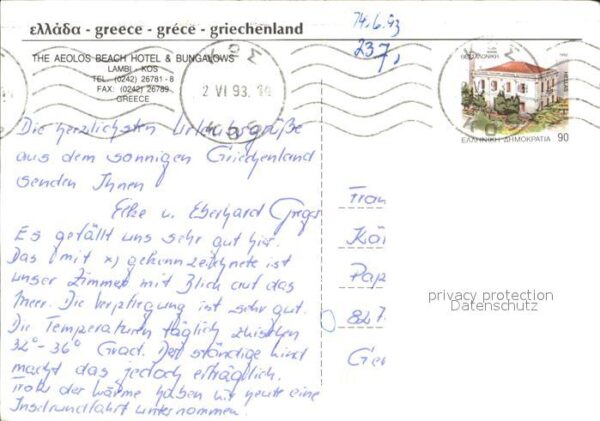 ελλάδα - greece - grèce - griechenland
14.6.93
237,
THE AEOLOS BEACH HOTEL & BUNGALOWS
LAMBI - KOS
TEL.: (0242) 26781 - 8
FAX: (0242) 26789
GREECE
ΚΩΣ
2 VI 93. 14
ΚΩΣ
ΘΕΣΣΑΛΟΝΙΚΗ
ΕΛΛΗΝΙΚΗ ΔΗΜΟΚΡΑΤΙΑ 90
Die herzlichsten Urlaubsgrüße
aus dem sonnigen Griechenland
senden Ihnen
Elke u. Eberhard
Es gefällt uns sehr gut hier.
Das (mit x) gekennzeichnete ist
unser Zimmer mit Blick auf das
Meer. Die Verpflegung ist sehr gut.
Die Temperaturen täglich zwischen
32°-36° Grad. Der ständige Wind
macht das jedoch erträglich.
Trotz der Wärme haben wir heute eine
Inselrundfahrt unternommen.
Frau
Kai
Pap
827
Ger
privacy protection
Datenschutz